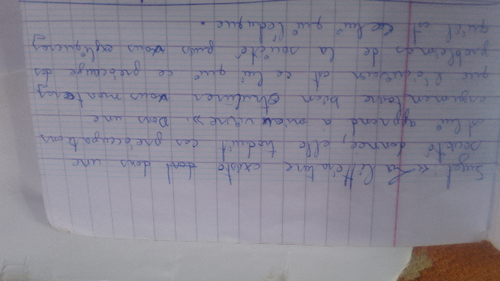 Sujet : « La littérature existe dont dans une
société donnée, elle traduit ces préoccupations
et lui apprend à mieux vivre ». Dans une
argumentaire bien structurer vous montrerez
que l'écrivain est ce lui qui ce préoccupe des
problèmes de la société puis vous expliquerez
qu'il est celui qui l'éduque.